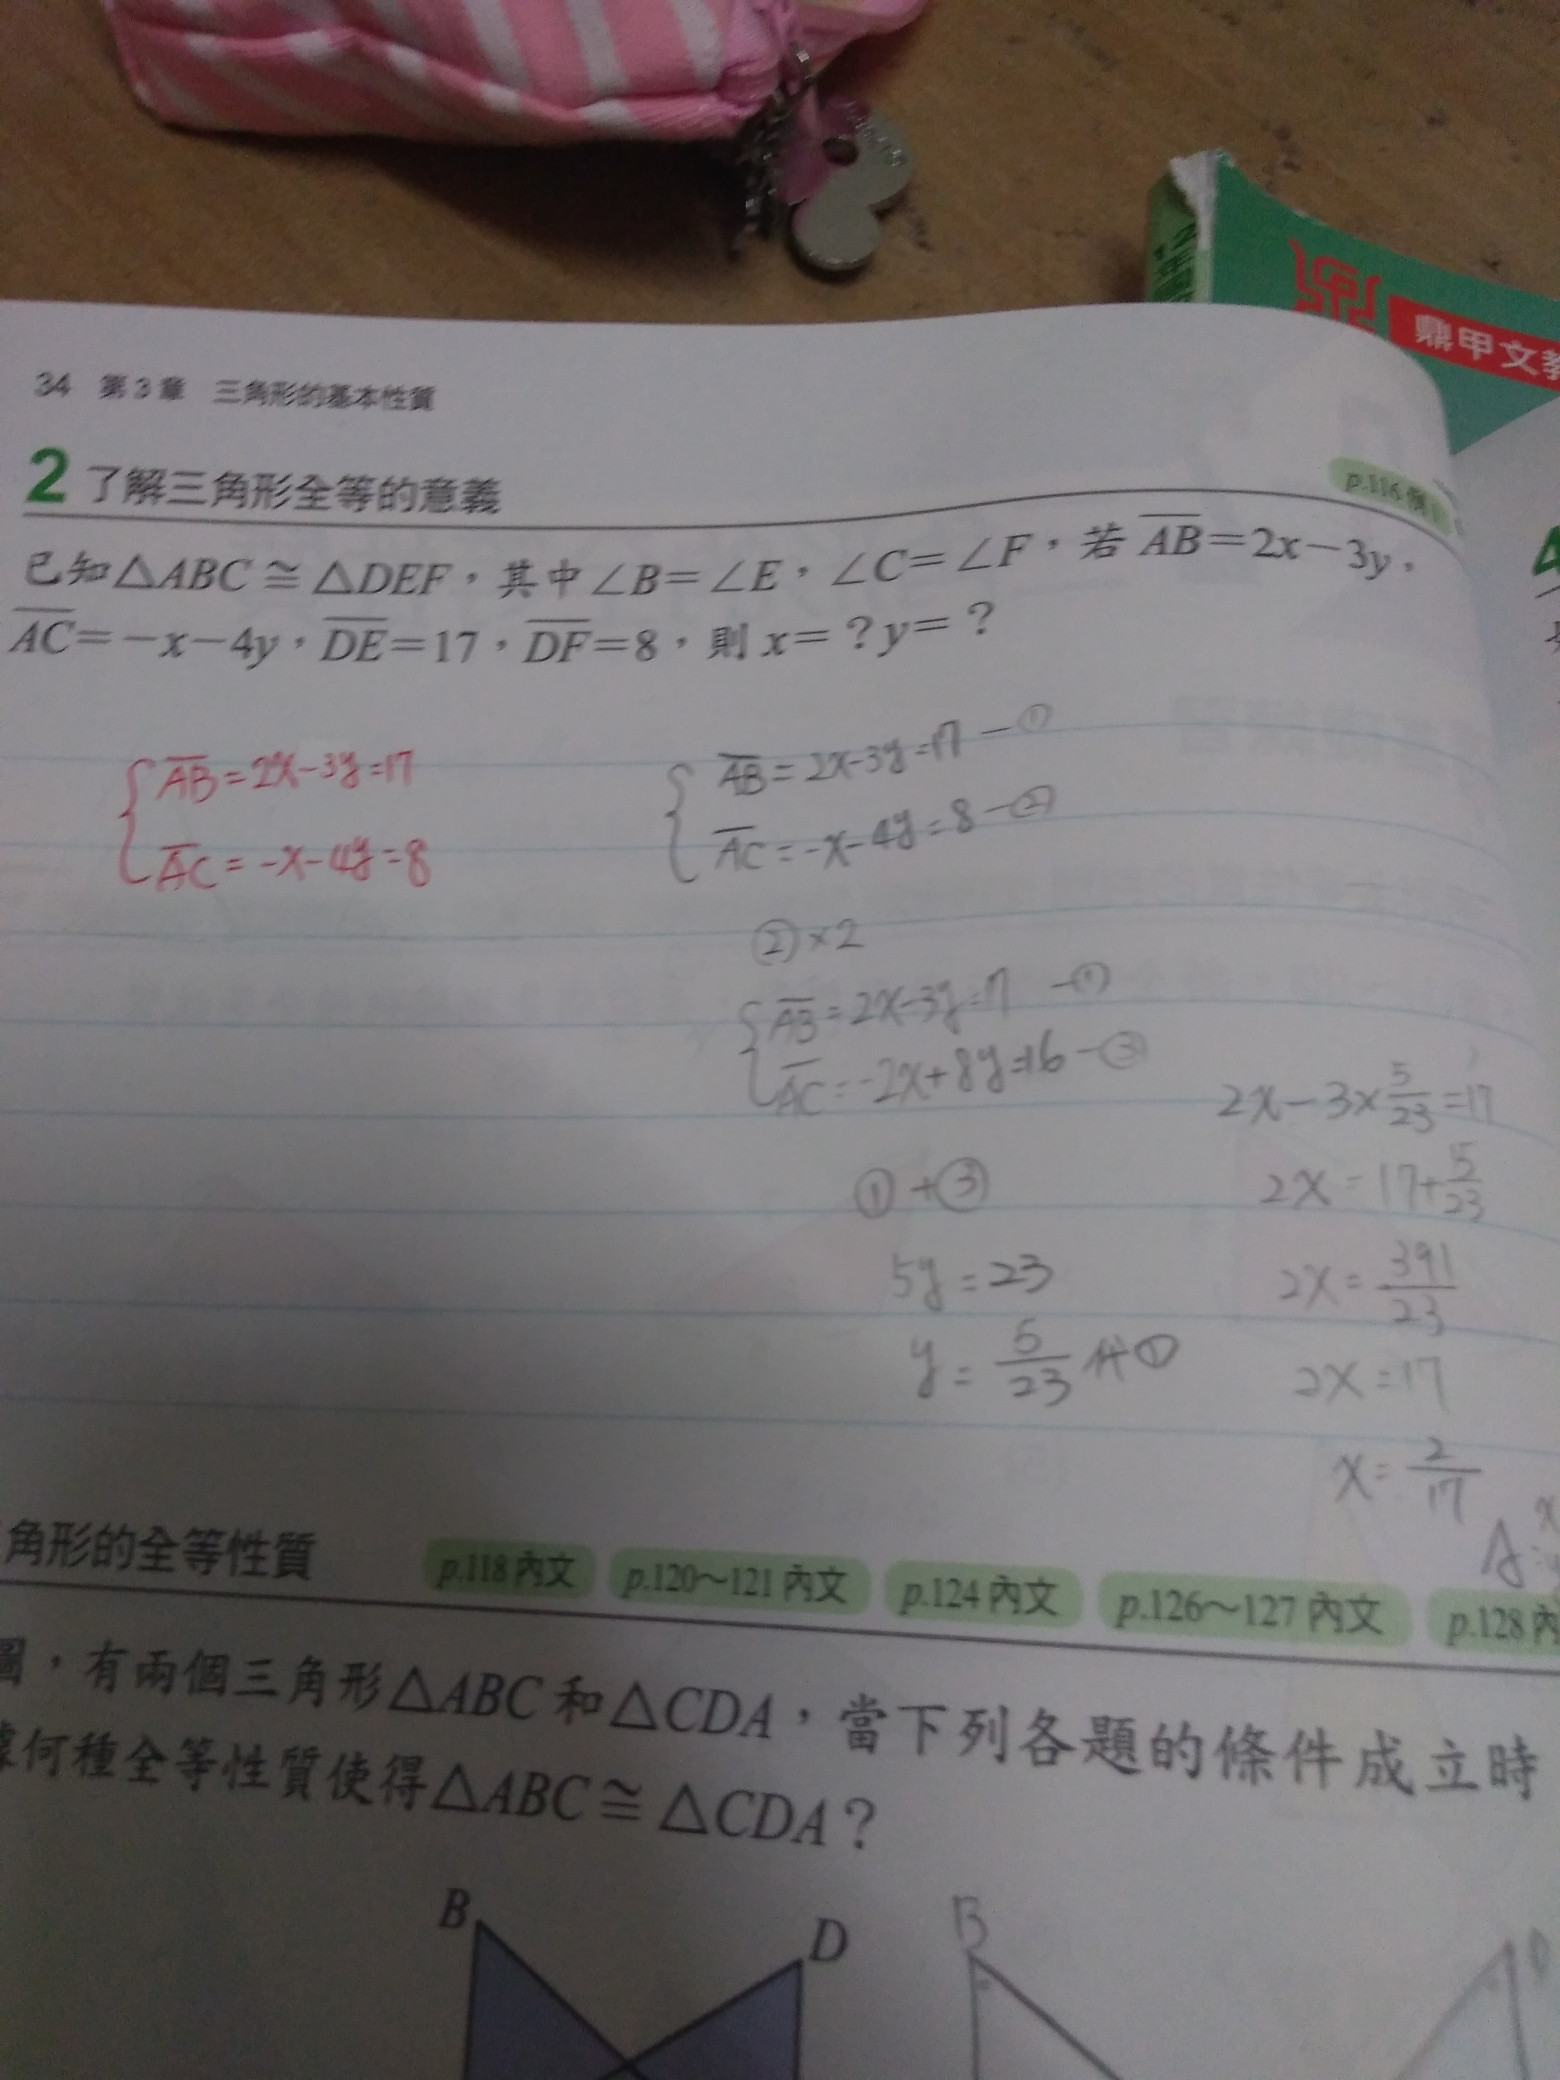 鼎甲文教
34 第3章 三角形的基本性質
2 了解三角形全等的意義
p.116 例1
已知△ABC≅△DEF，其中∠B=∠E，∠C=∠F，若AB=2x-3y，
AC=-x-4y，DE=17，DF=8，則x=？y=？
AB=2x-3y=17
AC=-x-4y=8
AB=2x-3y=17-①
AC=-x-4y=8-②
②×2
AB=2x-3y=17-①
AC=-2x+8y=16-③
①+③
5y=23
y=5/23代①
2x-3×5/23=17
2x=17+15/23
2x=391/23
2x=17
x=2/17
角形的全等性質
p.118 內文 p.120～121 內文 p.124 內文 p.126～127 內文 p.128 內
圖，有兩個三角形△ABC和△CDA，當下列各題的條件成立時
據何種全等性質使得△ABC≅△CDA？
B D B